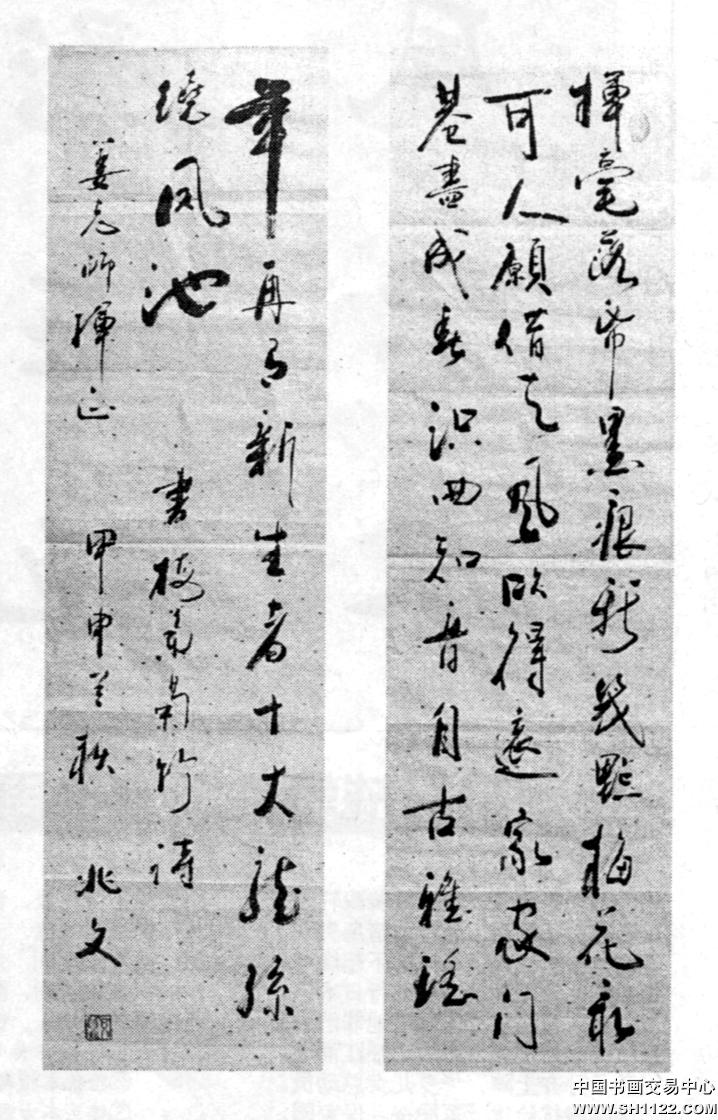 揮毫落紙墨痕新幾點梅花最
可人願借天風吹得遠家家门
巷盡成春识曲知音自古難瑶
年再有新生者十丈龍孫
繞鳳池 書梅蘭菊竹詩
姜老師揮正 甲申兰秋 兆文
中国书画交易中心
WWW.SH1122.COM